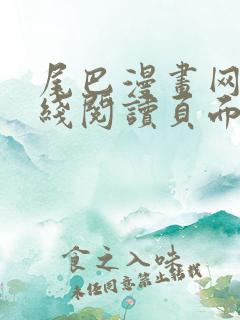 尾巴漫畫网
綫閱讀頁而
食之入味
未经同意禁止转载